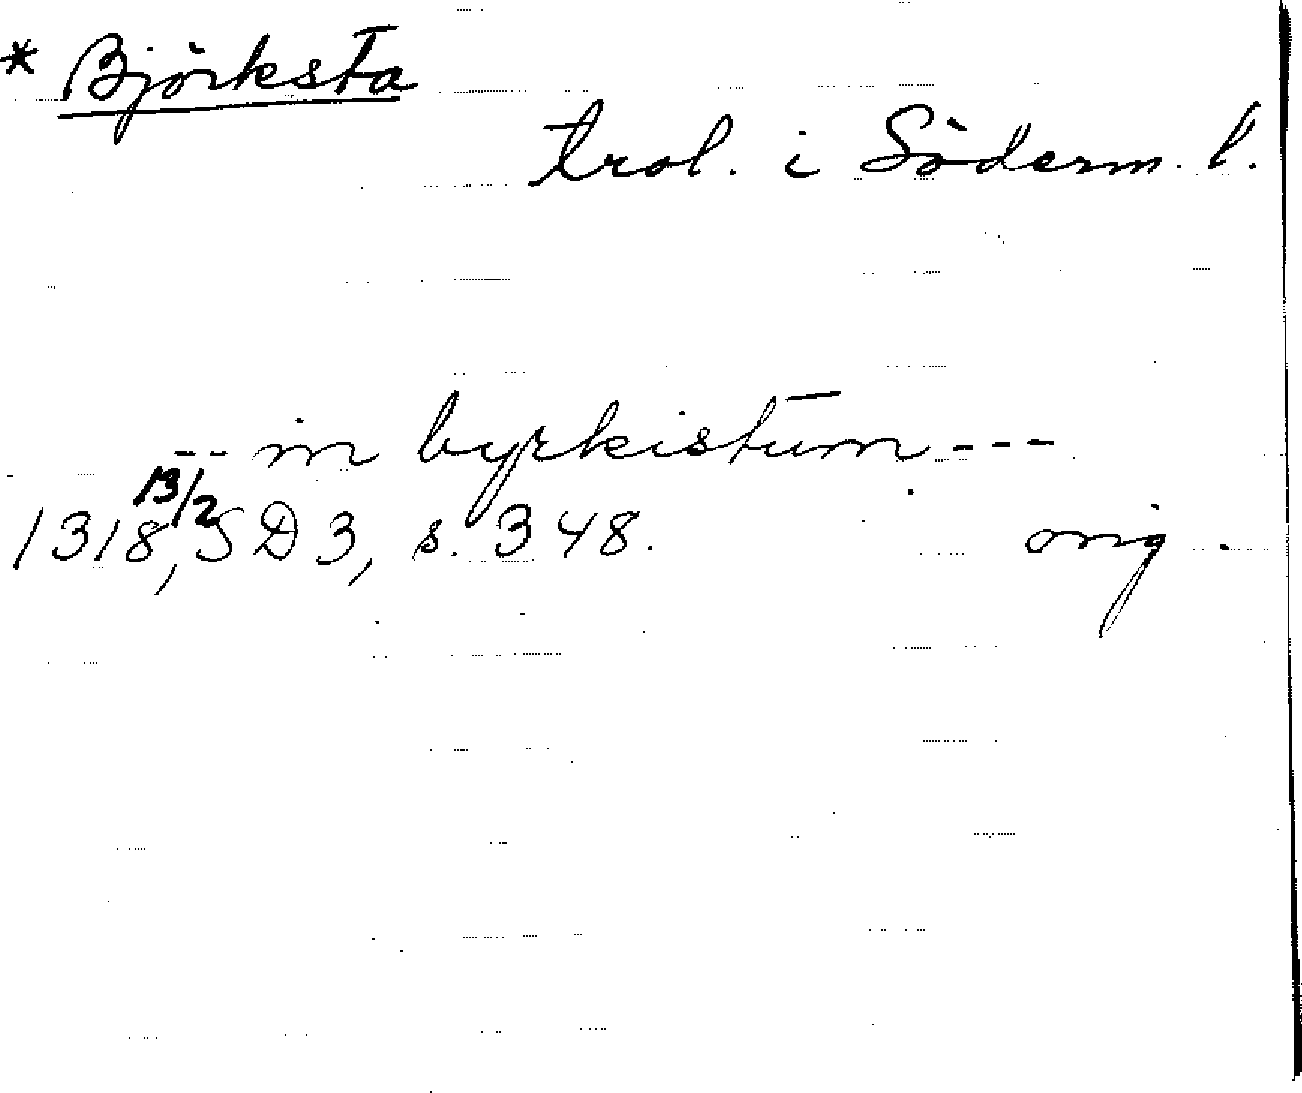 * Björksta
trol. i Söderm. l.
-- in byrkistum ---
13/2
1318, SD 3, s. 348. orig.